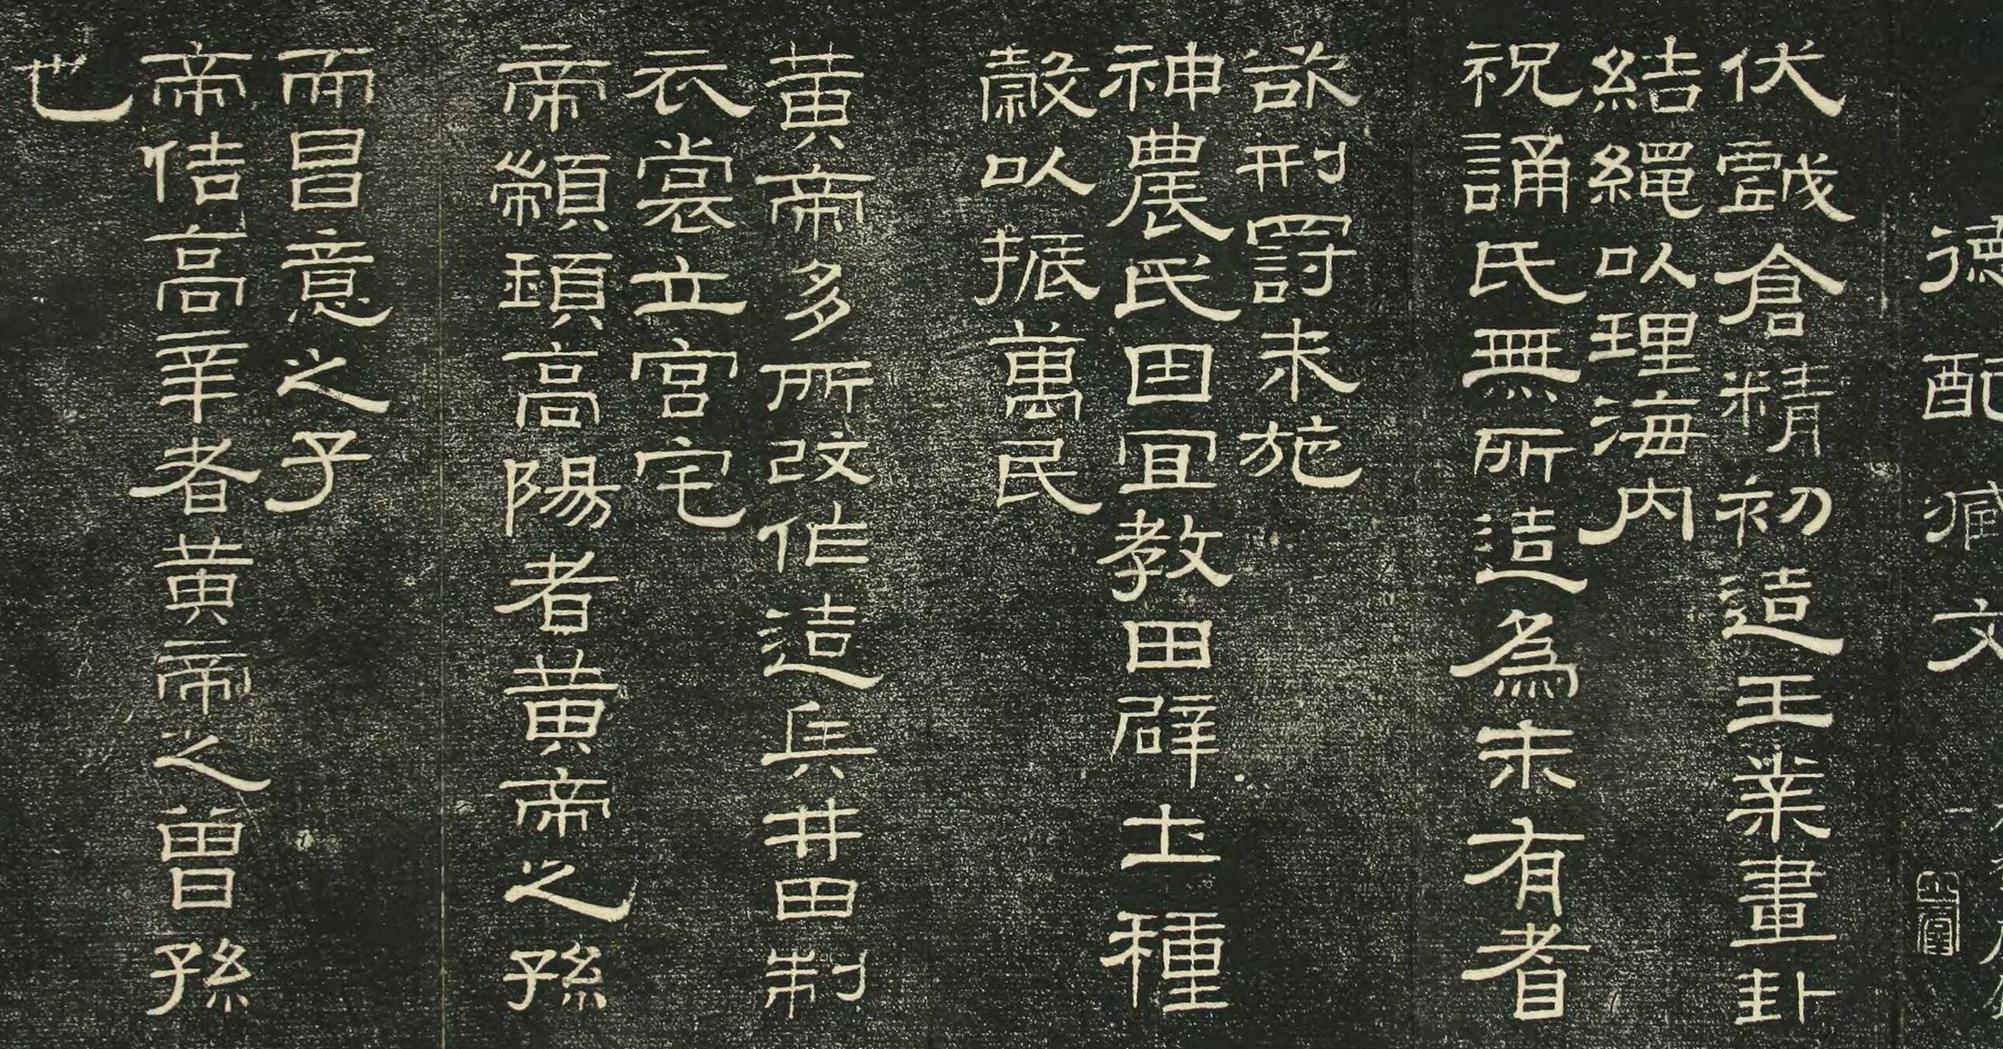 德配文
伏戲倉精初造王業畫卦
結繩以理海內
祝誦氏無所造為未有耆
欲刑罰未施
神農氏因宜教田辟土種
穀以振萬民
黃帝多所改作造兵井田制
衣裳立宮宅
帝顓頊高陽者黃帝之孫
而昌意之子
帝佶高辛者黃帝之曾孫
也